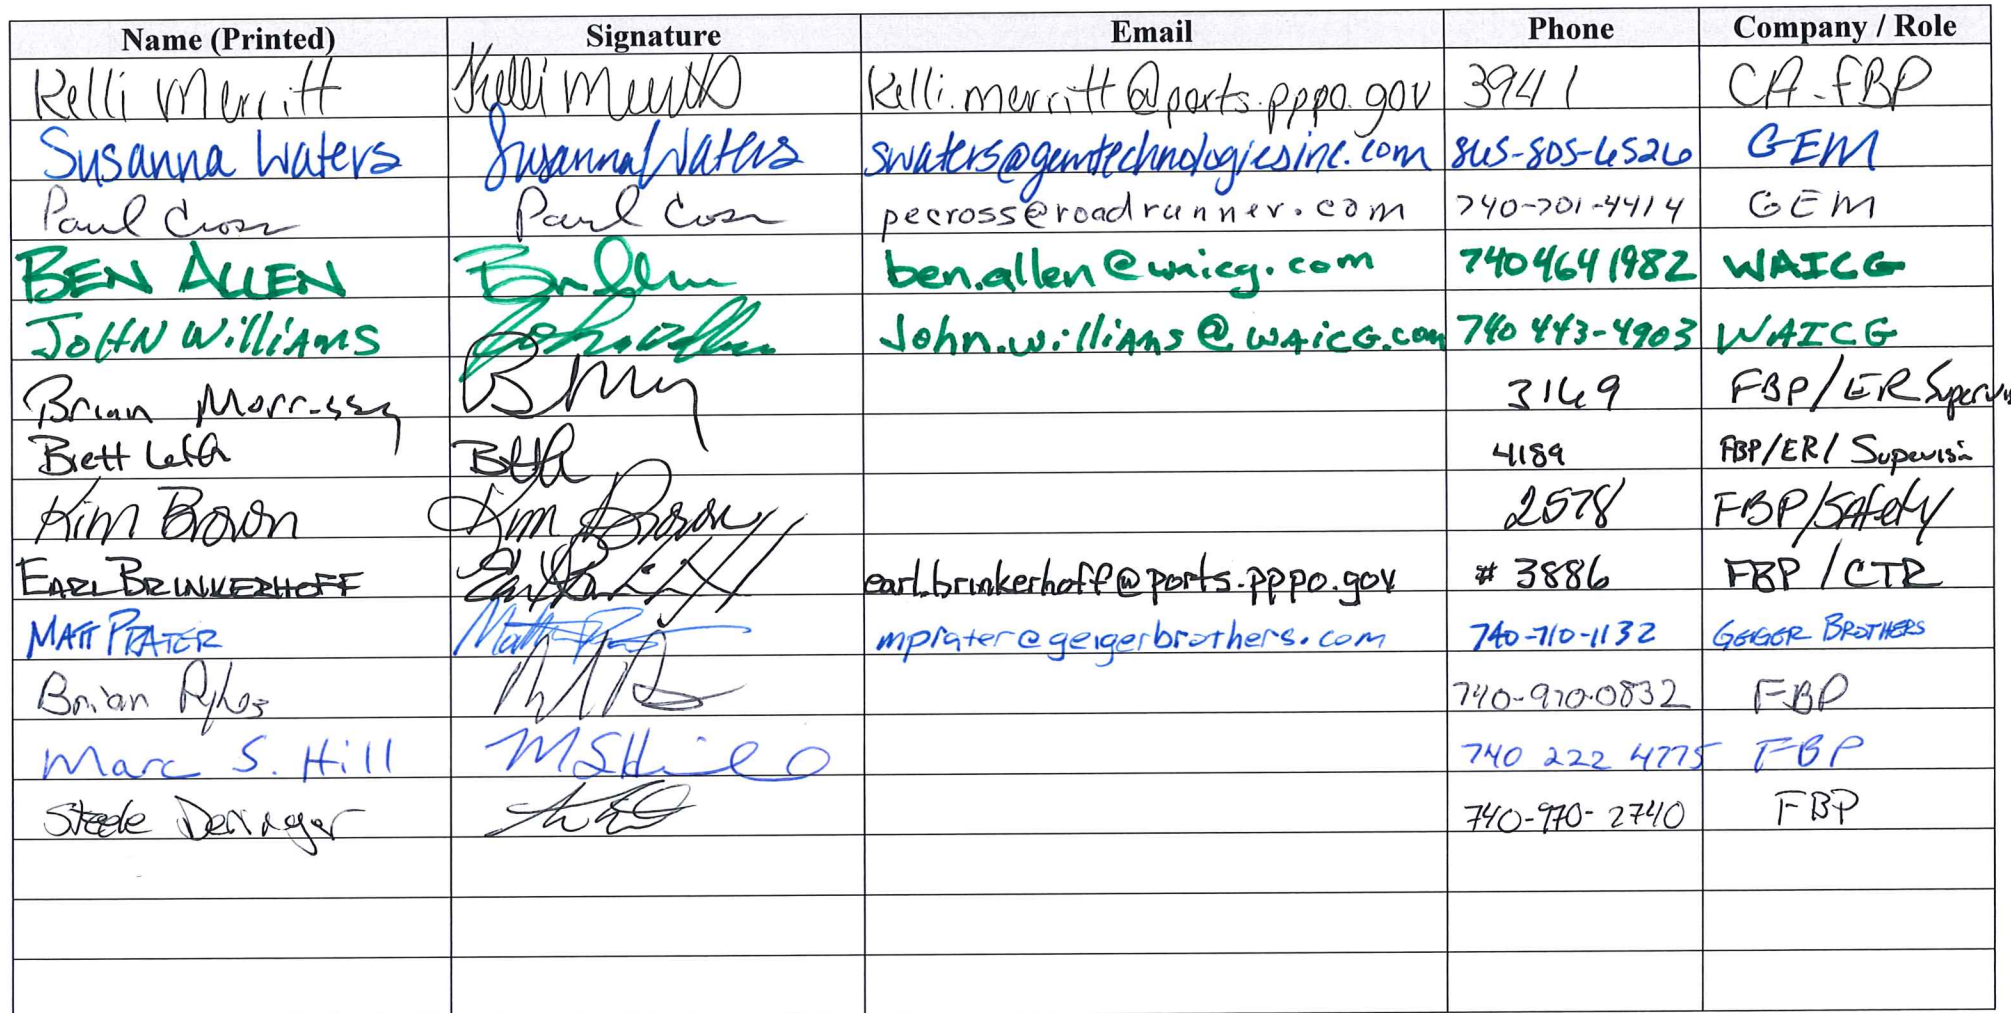 Name (Printed) Signature Email Phone Company / Role
Kelli Merritt Kelli Merritt kelli.merritt@ports.pppo.gov 3941 CA-FBP
Susanna Waters Susanna Waters swaters@gemtechnologiesinc.com 865-805-6526 GEM
Paul Cross Paul Cross pecross@roadrunner.com 740-701-4414 GEM
BEN ALLEN ben.allen@waicg.com 740 464 1982 WAICG
JOHN WilliAMS John.williAMS@WAiCG.com 740 443-4903 WAICG
Brian Morrissey 3169 FBP/ER Supervis
Brett 4189 FBP/ER/
Kim Brown Kim Brown 2578 FBP/Safety
EARL BRINKERHOFF earl.brinkerhoff@ports.pppo.gov # 3886 FBP/CTR
MATT PRATER mprater@geigerbrothers.com 740-710-1132 GEIGER BROTHERS
Brian 740-970-0832 FBP
Marc S. Hill 740 222 4775 FBP
Steele 740-970-2740 FBP